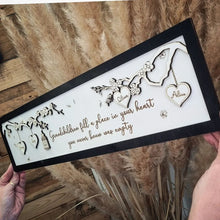 Grandchildren fill a place in your heart
you never knew was empty